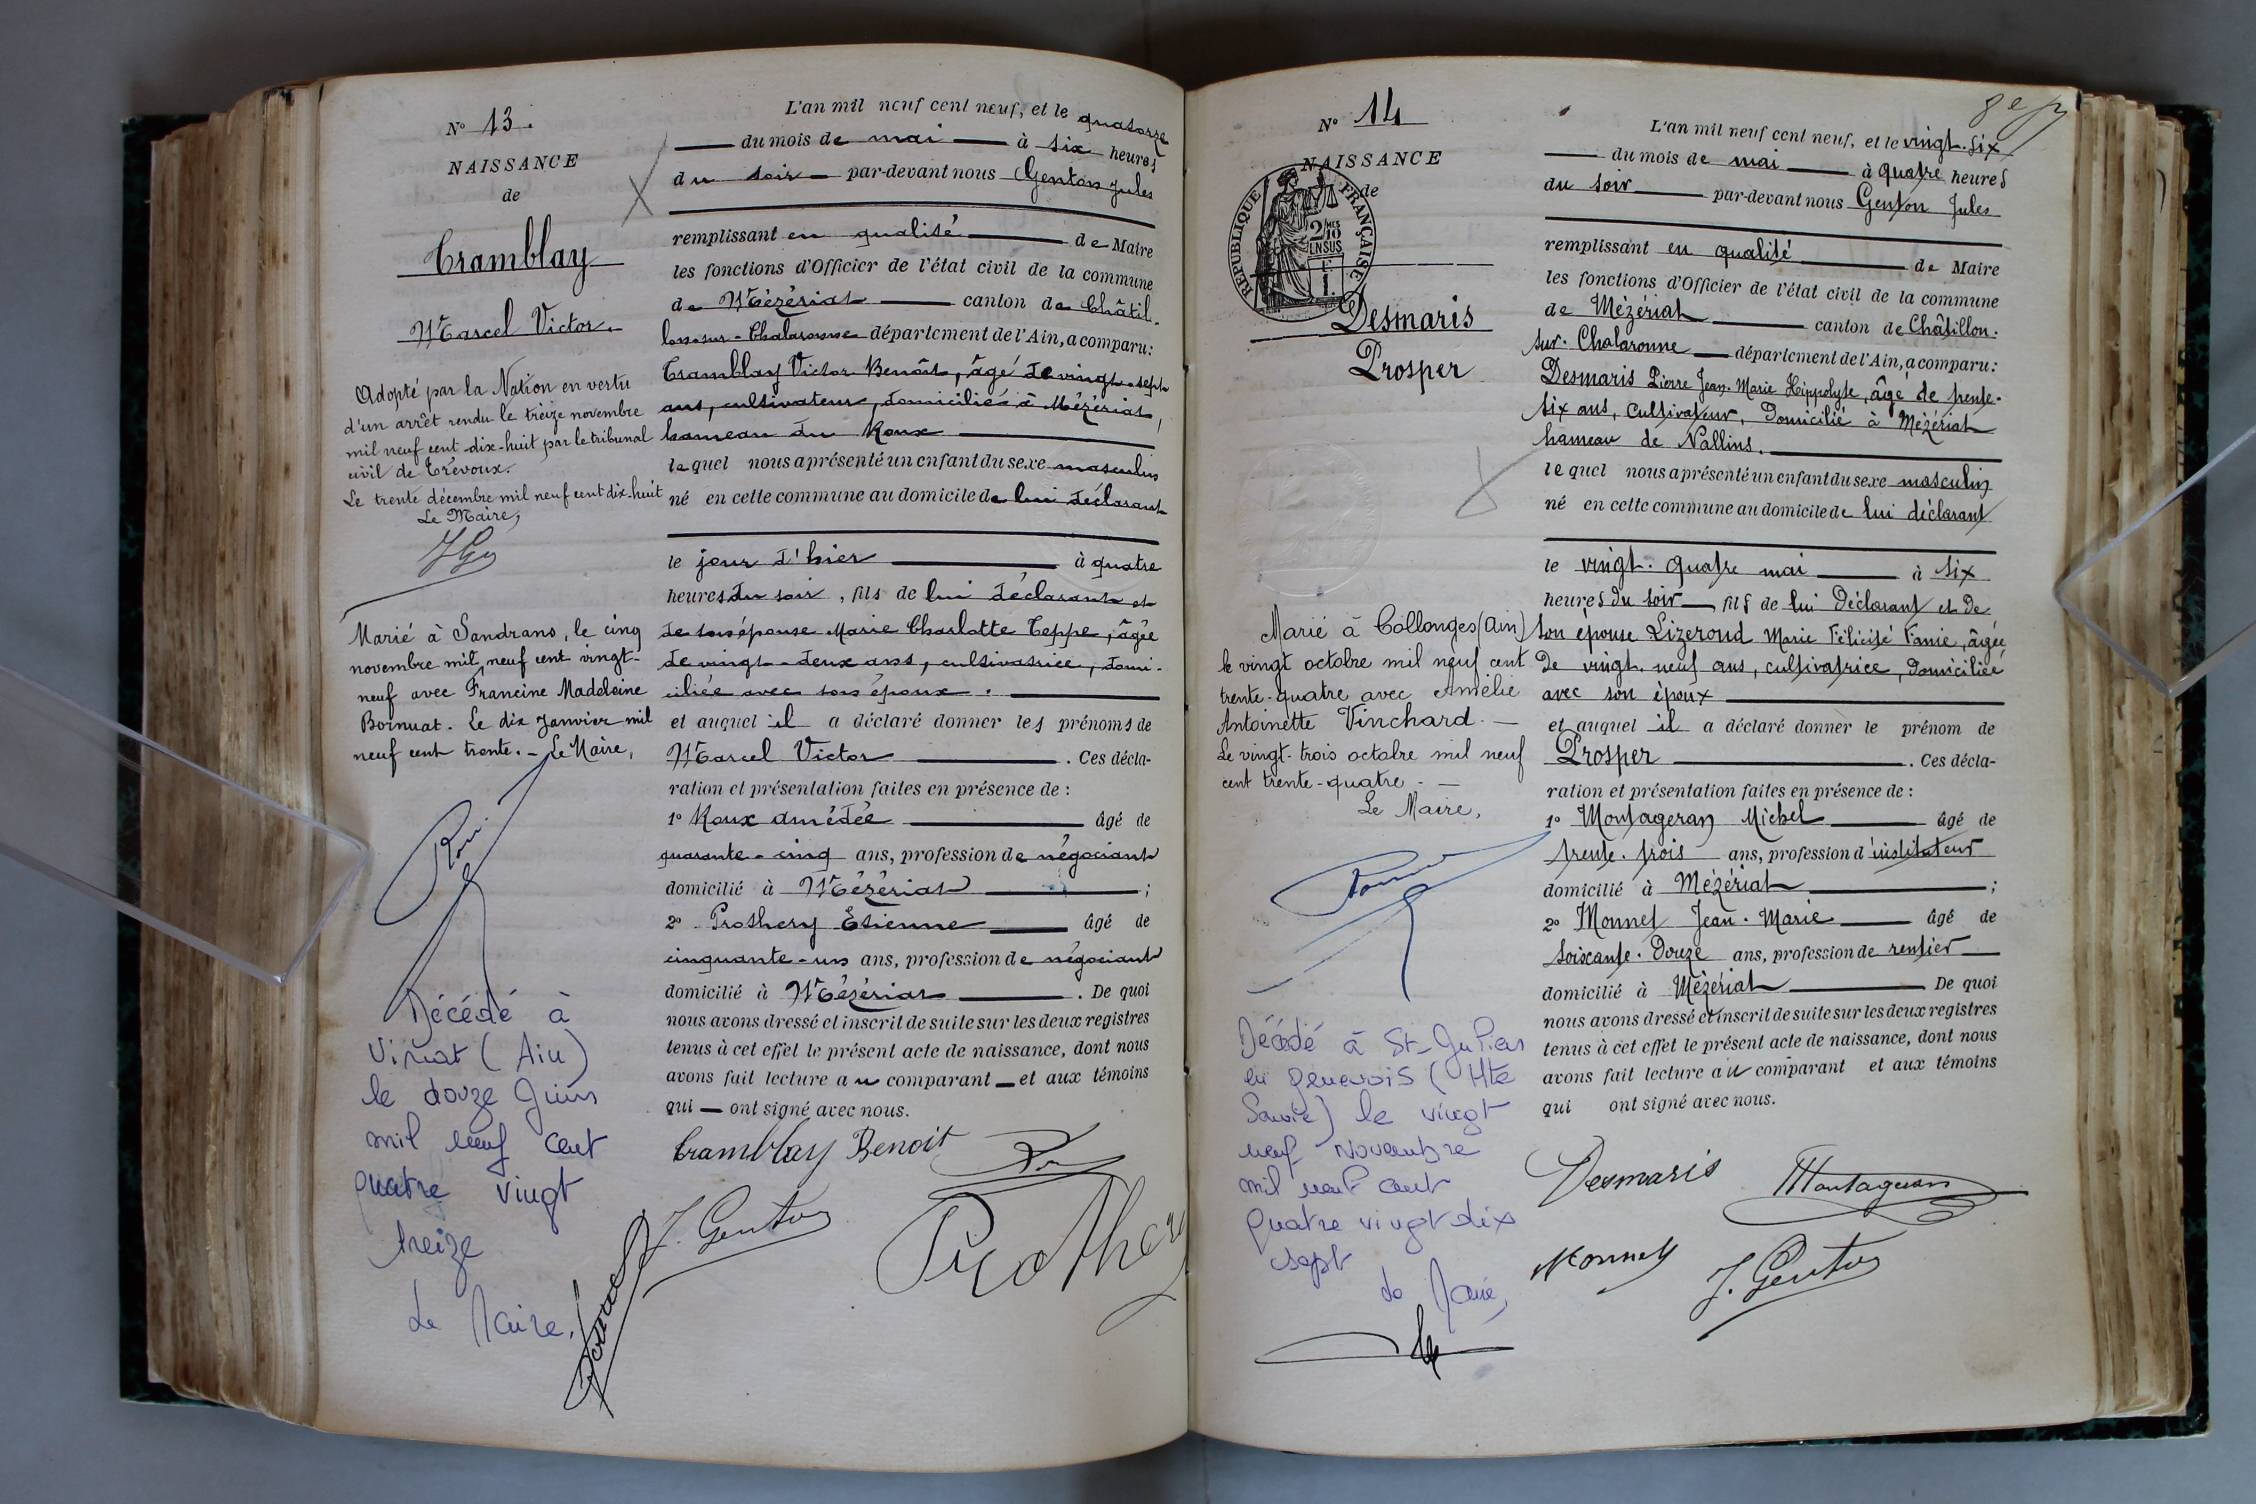 N° 13.
NAISSANCE
de
Tramblay
Marcel Victor.
Adopté par la Nation en vertu
d'un arrêt rendu le treize novembre
mil neuf cent dix-huit par le tribunal
civil de Trévoux.
Le trente décembre mil neuf cent dix-huit
Le Maire,
Marié à Sandrans, le cinq
novembre mil neuf cent vingt-
neuf avec Francine Madeleine
Bornuat. Le dix Janvier mil
neuf cent trente. - Le Maire,
Décédé à
Viriat (Ain)
le douze Juin
mil neuf cent
quatre vingt
treize
Le Maire.
L'an mil neuf cent neuf, et le quatorze
du mois de mai à six heures
du soir par-devant nous Genton Jules
remplissant en qualité de Maire
les fonctions d'Officier de l'état civil de la commune
de Mézériat canton de Châtil-
lon-sur-Chalaronne département de l'Ain, a comparu:
Tramblay Victor Benoit, âgé de vingt-sept
ans, cultivateur, domicilié à Mézériat,
hameau du Roux
lequel nous a présenté un enfant du sexe masculin
né en cette commune au domicile de lui déclarant
le jour d'hier à quatre
heures du soir, fils de lui déclarant et
de son épouse Marie Charlotte Teppe, âgée
de vingt-deux ans, cultivatrice, domi-
ciliée avec son époux.
et auquel il a déclaré donner les prénoms de
Marcel Victor . Ces décla-
ration et présentation faites en présence de :
1° Roux Amédée âgé de
quarante-cinq ans, profession de négociant
domicilié à Mézériat ;
2° Prothery Etienne âgé de
cinquante-un ans, profession de négociant
domicilié à Mézériat . De quoi
nous avons dressé et inscrit de suite sur les deux registres
tenus à cet effet le présent acte de naissance, dont nous
avons fait lecture au comparant et aux témoins
qui ont signé avec nous.
Tramblay Benoit
J. Genton
Prothery
N° 14
NAISSANCE
de
RÉPUBLIQUE FRANÇAISE
2/10
EN SUS
Desmaris
Prosper
Marié à Collonges (Ain)
le vingt octobre mil neuf cent
trente-quatre avec Amélie
Antoinette Vinchard. -
Le vingt-trois octobre mil neuf
cent trente-quatre. -
Le Maire,
Décédé à St-Julien
en genevois (Hte
Savoie) le vingt
neuf Novembre
mil neuf cent
quatre vingt dix
sept
Le Maire,
L'an mil neuf cent neuf, et le vingt-six
du mois de mai à quatre heures
du soir par-devant nous Genton Jules
remplissant en qualité de Maire
les fonctions d'Officier de l'état civil de la commune
de Mézériat canton de Châtillon-
sur-Chalaronne département de l'Ain, a comparu:
Desmaris Pierre Jean-Marie Hippolyte, âgé de trente-
six ans, cultivateur, domicilié à Mézériat
hameau de Nallins.
lequel nous a présenté un enfant du sexe masculin
né en cette commune au domicile de lui déclarant
le vingt-quatre mai à six
heures du soir fils de lui déclarant et de
son épouse Lizeroud Marie Félicité Fanie, âgée
de vingt-neuf ans, cultivatrice, domiciliée
avec son époux
et auquel il a déclaré donner le prénom de
Prosper . Ces décla-
ration et présentation faites en présence de :
1° Montageran Michel âgé de
trente-trois ans, profession d'instituteur
domicilié à Mézériat ;
2° Monnet Jean-Marie âgé de
soixante-douze ans, profession de rentier
domicilié à Mézériat De quoi
nous avons dressé et inscrit de suite sur les deux registres
tenus à cet effet le présent acte de naissance, dont nous
avons fait lecture au comparant et aux témoins
qui ont signé avec nous.
Desmaris
Montageran
Monnet
J. Genton